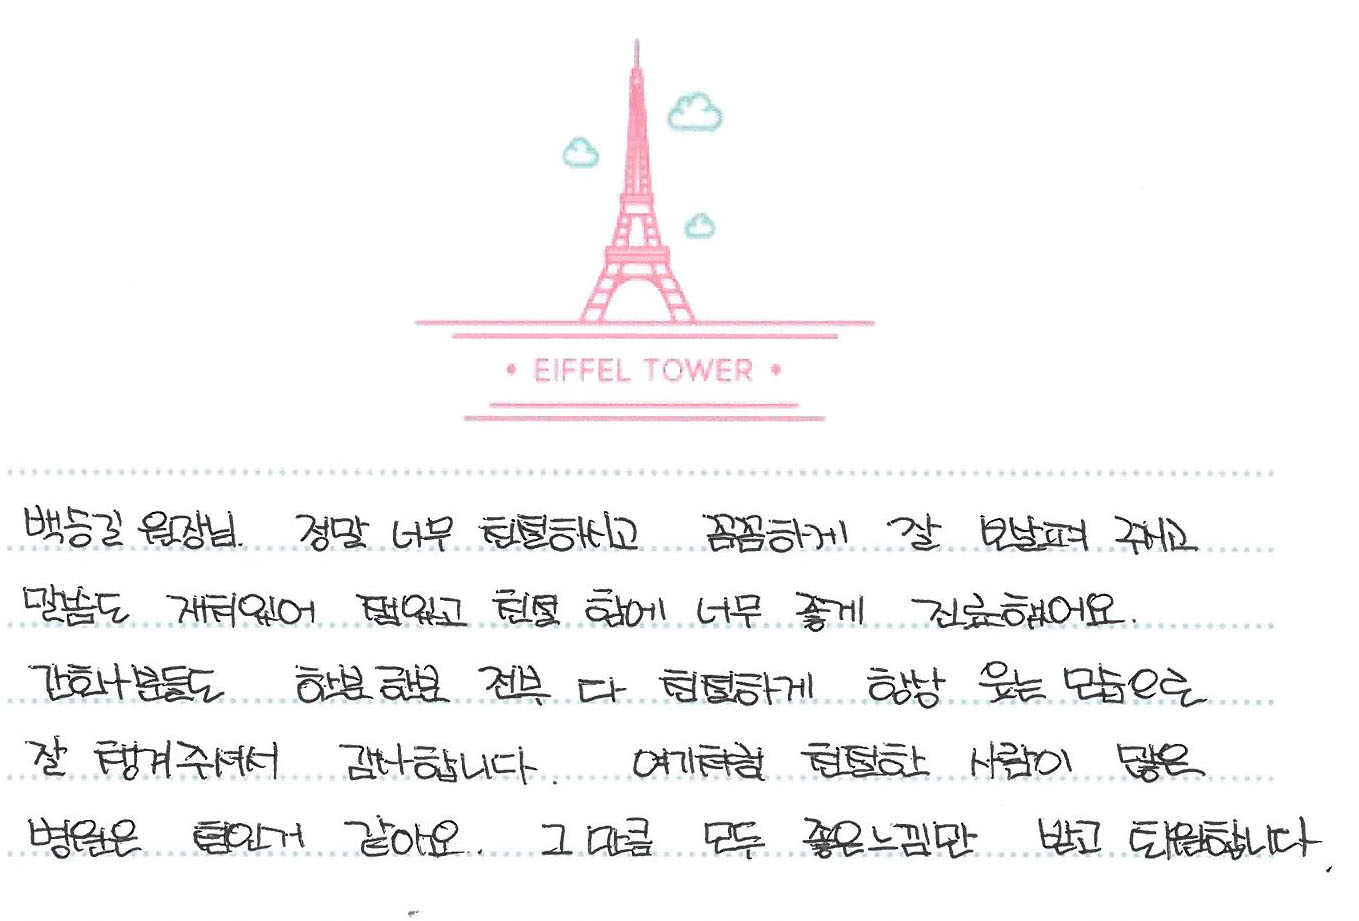 • EIFFEL TOWER •
백승길 원장님. 정말 너무 친절하시고 꼼꼼하게 잘 보살펴 주시고
말씀도 재치있어 책임있고 친절 함에 너무 좋게 진료했어요.
간호사분들도 한분한분 전부 다 친절하게 항상 웃는 모습으로
잘 챙겨주셔서 감사합니다. 여기처럼 친절한 사람이 많은
병원은 첨인거 같아요. 그만큼 모두 좋은느낌만 받고 퇴원합니다.